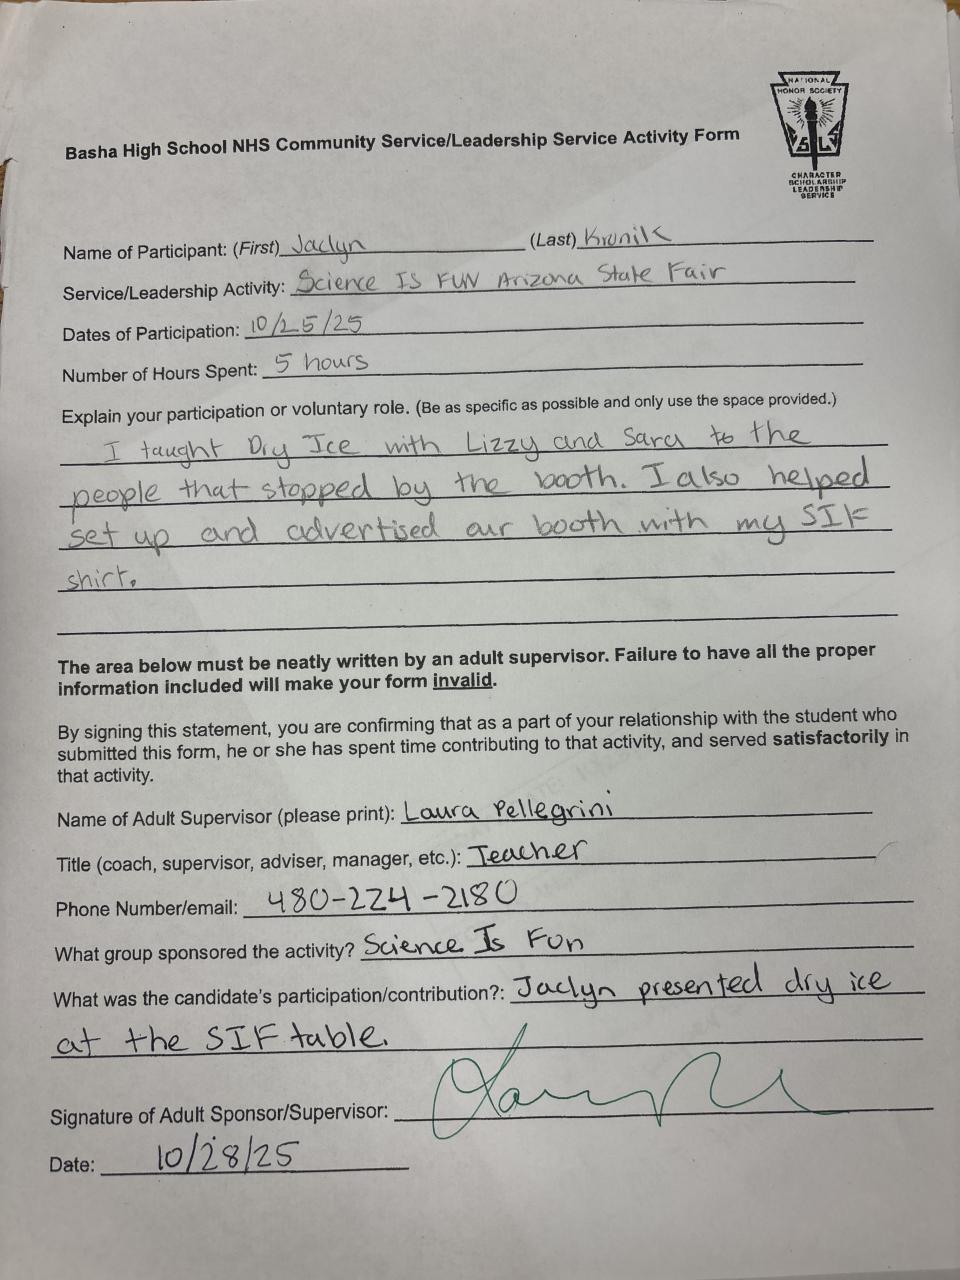 NATIONAL
HONOR SOCIETY
CHARACTER
SCHOLARSHIP
LEADERSHIP
SERVICE
Basha High School NHS Community Service/Leadership Service Activity Form
Name of Participant: (First) Jaclyn (Last) Kronik
Service/Leadership Activity: Science IS FUN Arizona State Fair
Dates of Participation: 10/25/25
Number of Hours Spent: 5 hours
Explain your participation or voluntary role. (Be as specific as possible and only use the space provided.)
I taught Dry Ice with Lizzy and Sara to the
people that stopped by the booth. I also helped
set up and advertised our booth with my SIF
shirt.
The area below must be neatly written by an adult supervisor. Failure to have all the proper
information included will make your form invalid.
By signing this statement, you are confirming that as a part of your relationship with the student who
submitted this form, he or she has spent time contributing to that activity, and served satisfactorily in
that activity.
Name of Adult Supervisor (please print): Laura Pellegrini
Title (coach, supervisor, adviser, manager, etc.): Teacher
Phone Number/email: 480-224-2180
What group sponsored the activity? Science Is Fun
What was the candidate's participation/contribution?: Jaclyn presented dry ice
at the SIF table.
Signature of Adult Sponsor/Supervisor:
Date: 10/28/25